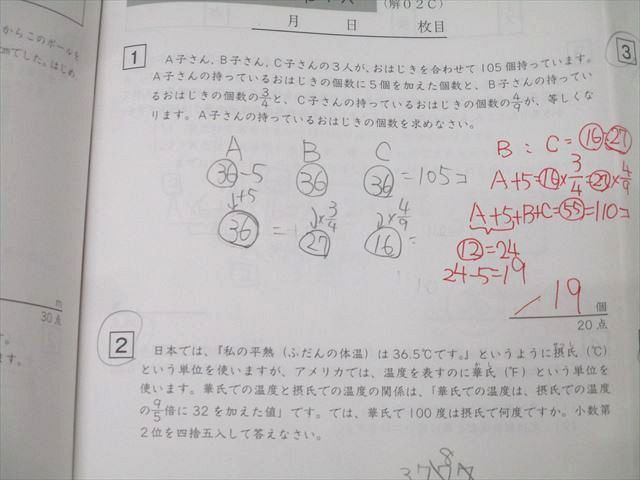 (解02C)
月 日 枚目
からこのボールを
cmでした。はじめ
1
3
A子さん、B子さん、C子さんの3人が、おはじきを合わせて105個持っています。
A子さんの持っているおはじきの個数に5個を加えた個数と、B子さんの持ってい
るおはじきの個数の3/4と、C子さんの持っているおはじきの個数の4/9が、等しくな
ります。A子さんの持っているおはじきの個数を求めなさい。
A B C
㊱-5 ㊱ ㊱=105コ
↓+5 ↓×3/4 ↓×4/9
㊱ = ㉗ ⑯ =
B : C = ⑯:㉗
A+5=⑯×3/4=㉗×4/9
A+5+B+C=55=110コ
⑫=24
24-5=19
19 個
20点
m
30点
2
日本では、『私の平熱(ふだんの体温)は36.5℃です。』というように摂氏(℃)
という単位を使いますが、アメリカでは、温度を表すのに華氏(℉)という単位を
使います。華氏での温度と摂氏での温度の関係は、「華氏での温度は、摂氏での温度
の9/5倍に32を加えた値」です。では、華氏で100度は摂氏で何度ですか。小数第
2位を四捨五入して答えなさい。